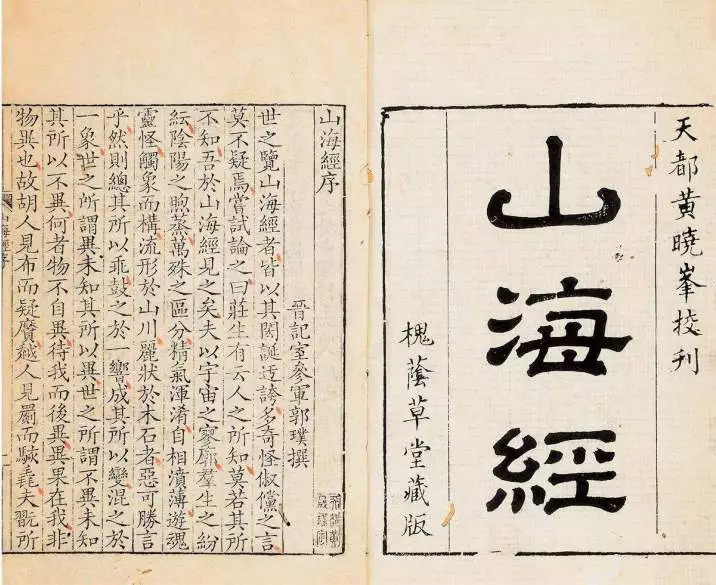 天都黃曉峯校刊
山海經
槐蔭草堂藏版
山海經序
晉記室參軍郭璞撰
世之覽山海經者皆以其閎誕迂誇多奇怪俶儻之言
莫不疑焉嘗試論之曰莊生有云人之所知莫若其所
不知吾於山海經見之矣夫以宇宙之寥廓羣生之紛
紜陰陽之煦蒸萬殊之區分精氣渾淆自相濆薄遊魂
靈怪觸象而構流形於山川麗狀於木石者惡可勝言
乎然則總其所以乖鼓之於一響成其所以變混之於
一象世之所謂異未知其所以異世之所謂不異未知
其所以不異何者物不自異待我而後異異果在我非
物異也故胡人見布而疑黂越人見罽而駴毳夫翫所
山海經序
一